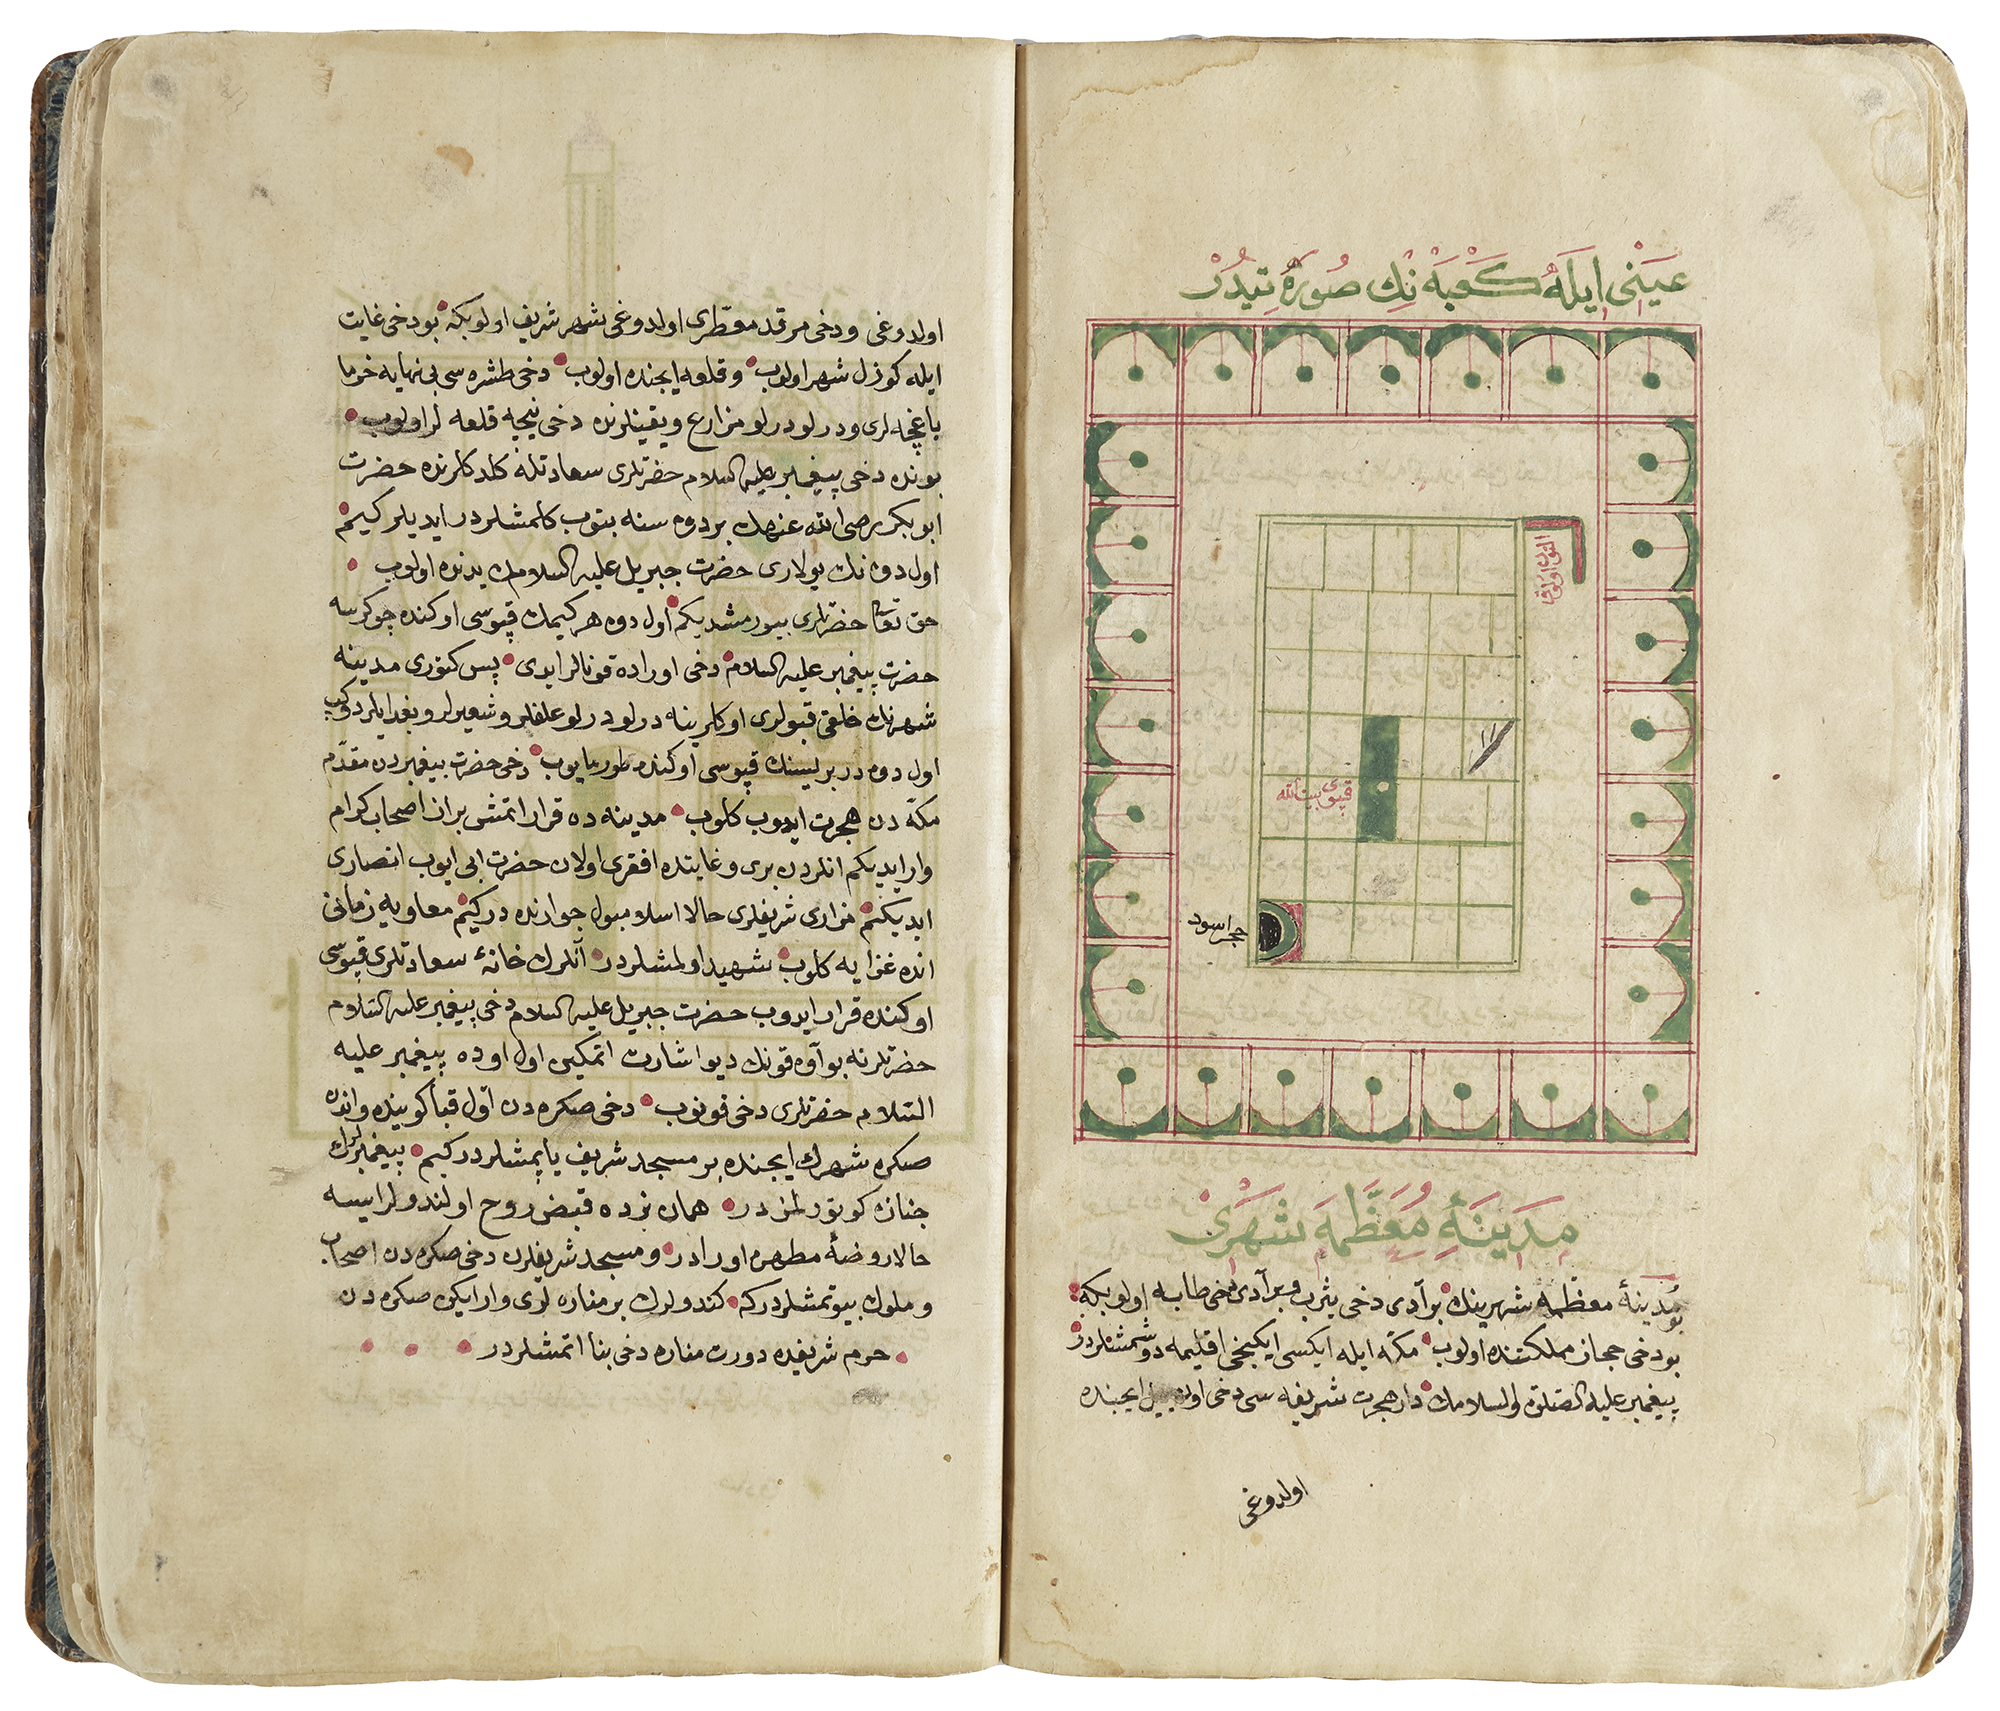 عينى ايله كعبه نك صورتيدر
التون اولوق
قپوى بيت الله
حجر اسود
مدينهٔ معظمه شهرى
مدينهٔ معظمه شهرينك بر آدى دخى يثرب و بر آدى دخى طابه اولوبكه
بو دخى حجاز مملكتنده اولوب مكه ايله ايكسى ايكنجى اقليمه دوشمشلردر
پيغمبر عليه الصلوة والسلامك دار هجرت شريفه سى دخى ايچنده
اولدوغى
اولدوغى ودخى مرقد معطرى اولدوغى شهر شريف اولوبكه بو دخى غايت
ايله كوزل شهر اولوب وقلعه ايچنده اولوب دخى طشره سى بى نهايه خرما
باغچه لرى ودرلو درلو مزارع ويقينلرنده دخى نيچه قلعه لر اولوب
بونده دخى پيغمبر عليه السلام حضرتلرى سعادتله كلدكلرنده حضرت
ابو بكر رضى الله عنهك بر دوه سنه بنوب كلمشلردر ايديلر كيم
اول دوه نك يولارى حضرت جبريل عليه السلامك يدنده اولوب
حق تعالى حضرتلرى بيورمشديكم اول دوه هر كيمك قپوسى اوكنده چوكرسه
حضرت پيغمبر عليه السلام دخى اوراده قونالر ايدى پس كتورى مدينه
شهرنك خلقى قپولرى اوكلرينه درلو درلو علفلر وشعيرلر وبغدايلر دوكوب
اول دوه در بريسينك قپوسى اوكنده طورمايوب دخى حضرت پيغمبردن مقدم
مكه دن هجرت ايدوب كلوب مدينه ده قرار اتمش بر از اصحاب كرام
وار ايديكم انلردن برى وغايتده افقرى اولان حضرت ابى ايوب انصارى
ايديكم مزارى شريفلرى حالا اسلامبول جوارنده در كيم معاويه زمانى
انده غزايه كلوب شهيد اولمشلردر آنلرك خانهٔ سعادتلرى قپوسى
اوكنده قرار ايدوب حضرت جبريل عليه السلام دخى پيغمبر عليه السلام
حضرتلرنه بو آوه قونك ديو اشارت اتمكين اول اوده پيغمبر عليه
السلام حضرتلرى دخى قونوب دخى صكره دن اول قبا كوينده واندن
صكره شهرك ايچنده بر مسجد شريف ياپمشلردر كيم پيغمبرلرك
جنازه كوتورلمزدر همان نرده قبض روح اولندولر ايسه
حالا روضهٔ مطهره اورادر ومسجد شريفلرن دخى صكره دن اصحاب
وملوك بيوتمشلردركه كندولرك بر مناره لرى وار ايكن صكره دن
حرم شريفده دورت مناره دخى بنا اتمشلردر